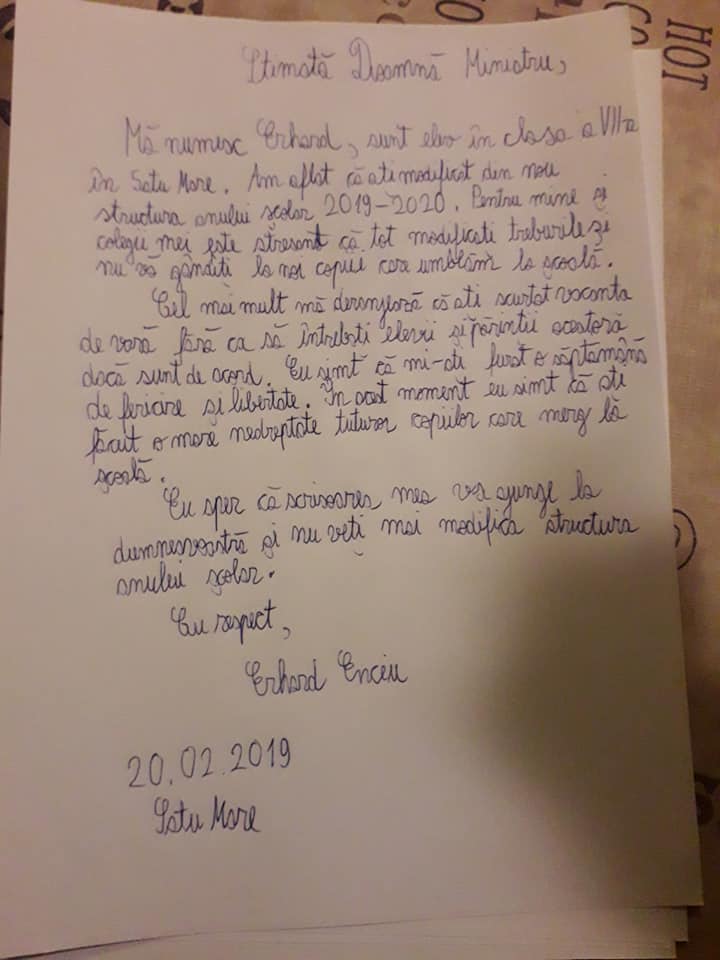 Stimată Doamnă Ministru,
Mă numesc Erhard, sunt elev în clasa a VII-a
în Satu Mare. Am aflat că ati modificat din nou
structura anului școlar 2019-2020. Pentru mine și
colegii mei este stresant că tot modificati treburile și
nu vă gânditi la noi copiii care umblăm la școală.
Cel mai mult mă deranjează că ati scurtat vacanta
de vară fără ca să întrebati elevii și părintii acestora
dacă sunt de acord. Eu simt că mi-ati furat o săptămână
de fericire și libertate. În acest moment eu simt că ati
făcut o mare nedreptate tuturor copiilor care merg la
școală.
Eu sper că scrisoarea mea va ajunge la
dumneavoastră și nu veți mai modifica structura
anului școlar.
Cu respect,
Erhard Enciu
20.02.2019
Satu Mare
HOT